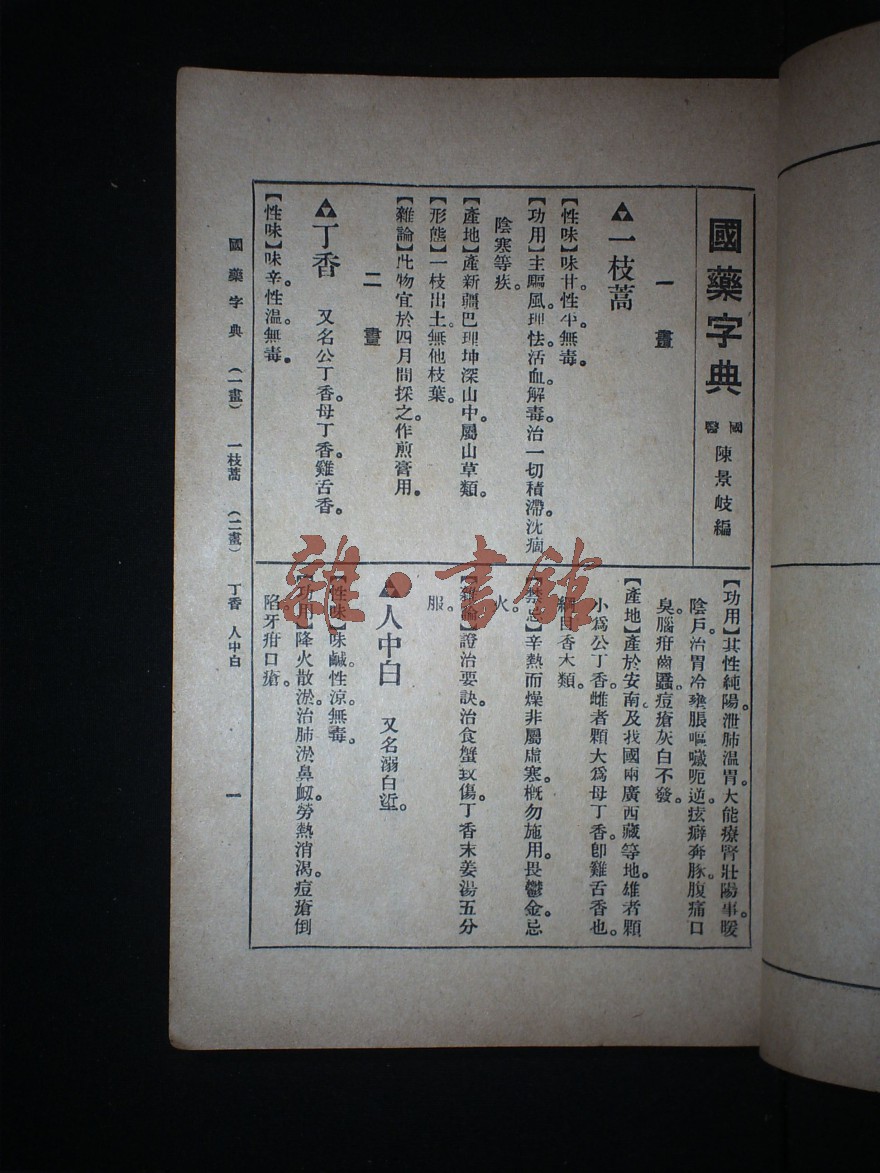 國藥字典
國醫 陳景岐編
一畫
▲一枝蒿
【性味】味甘。性平。無毒。
【功用】主驅風。理怯。活血。解毒。治一切積滯。沈痼
陰寒等疾。
【產地】產新疆巴理坤深山中。屬山草類。
【形態】一枝出土。無他枝葉。
【雜論】此物宜於四月間採之。作煎膏用。
二畫
▲丁香 又名公丁香。母丁香。雞舌香。
【性味】味辛。性溫。無毒。
【功用】其性純陽。泄肺溫胃。大能療腎。壯陽事。暖
陰戶。治胃冷壅脹。嘔噦呃逆。痃癖奔豚。腹痛口
臭。腦疳齒䘌。痘瘡灰白不發。
【產地】產於安南及我國兩廣西藏等地。雄者顆
小爲公丁香。雌者顆大爲母丁香。卽雞舌香也。
綱目香木類。
【禁忌】辛熱而燥。非屬虛寒。概勿施用。畏鬱金。忌
火。
【雜論】證治要訣。治食蟹致傷。丁香末姜湯五分
服。
▲人中白 又名溺白垽。
【性味】味鹹。性涼。無毒。
【功用】降火散淤。治肺淤鼻衂。勞熱消渴。痘瘡倒
陷。牙疳口瘡。
國藥字典 (一畫) 一枝蒿 (二畫) 丁香 人中白 一
雜·書館